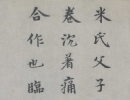 米氏父子
卷沉著痛
合作也臨